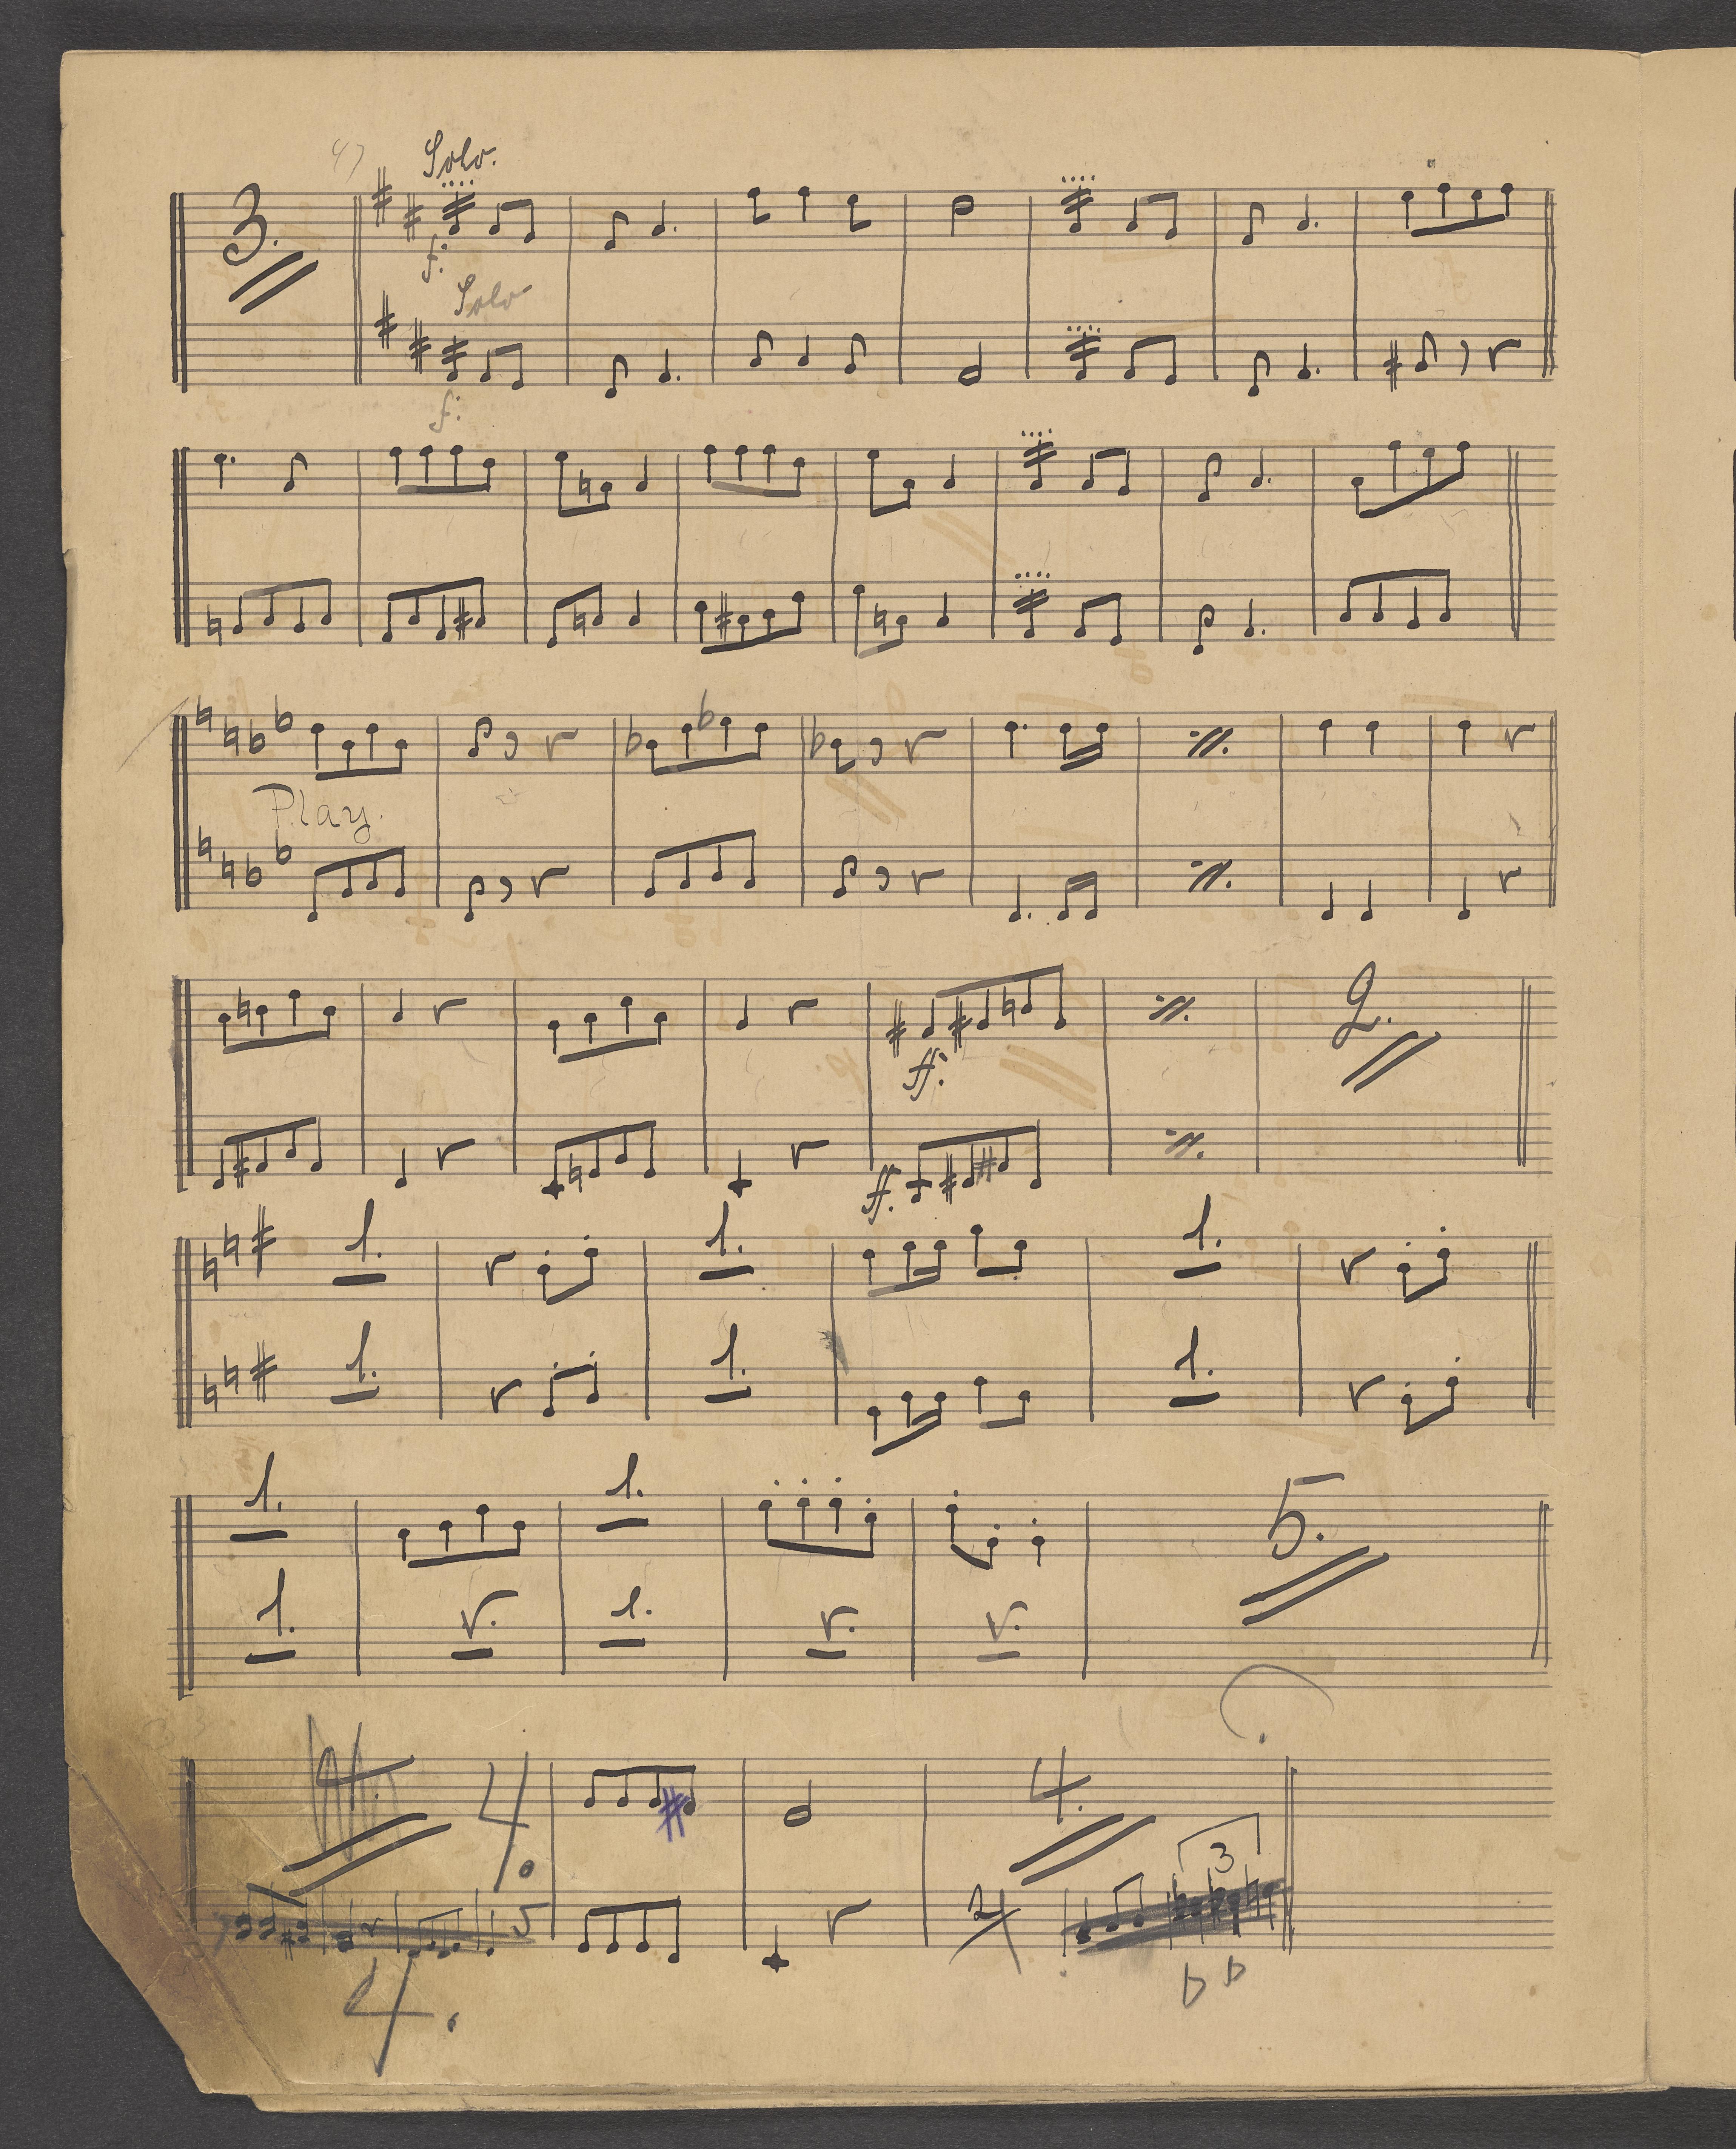 Solo.
3.
f:
Solo
f:
3
Play.
ff:
2.
ff.
1. 1. 1.
1. 1. 1.
1. 1.
5.
1. 1.
4. 4.
3
4.